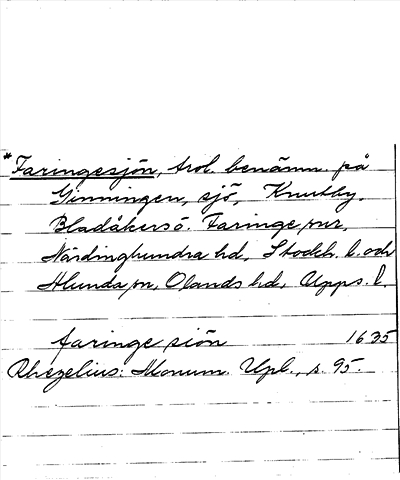 *Faringesjön, trol. benämn. på
Ginningen, sjö, Knutby,
Bladåkers o. Faringe snr,
Närdinghundra hd, Stockh. l. och
Alunda sn, Olands hd, Upps. l.
faringe siön 1635
Rhezelius: Monum. Upl., s. 95.